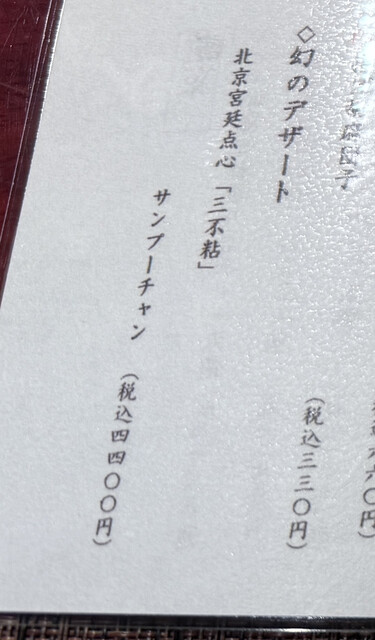 団子
◇幻のデザート
(税込三三〇円)
北京宮廷点心「三不粘」
サンプーチャン
(税込四四〇〇円)